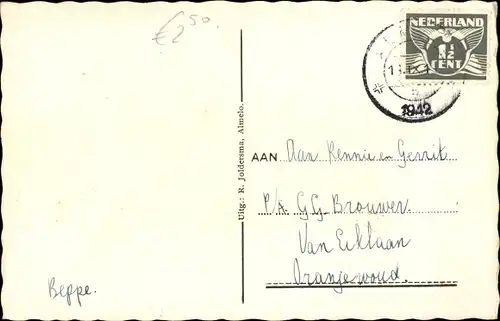 €2 50.
NEDERLAND
1½
CENT
1942
Uitg.: R. Joldersma, Almelo.
AAN Aan Rennie en Gerrit
P/A G.G. Brouwer.
Van Eiklaan
Oranjewoud.
Beppe.